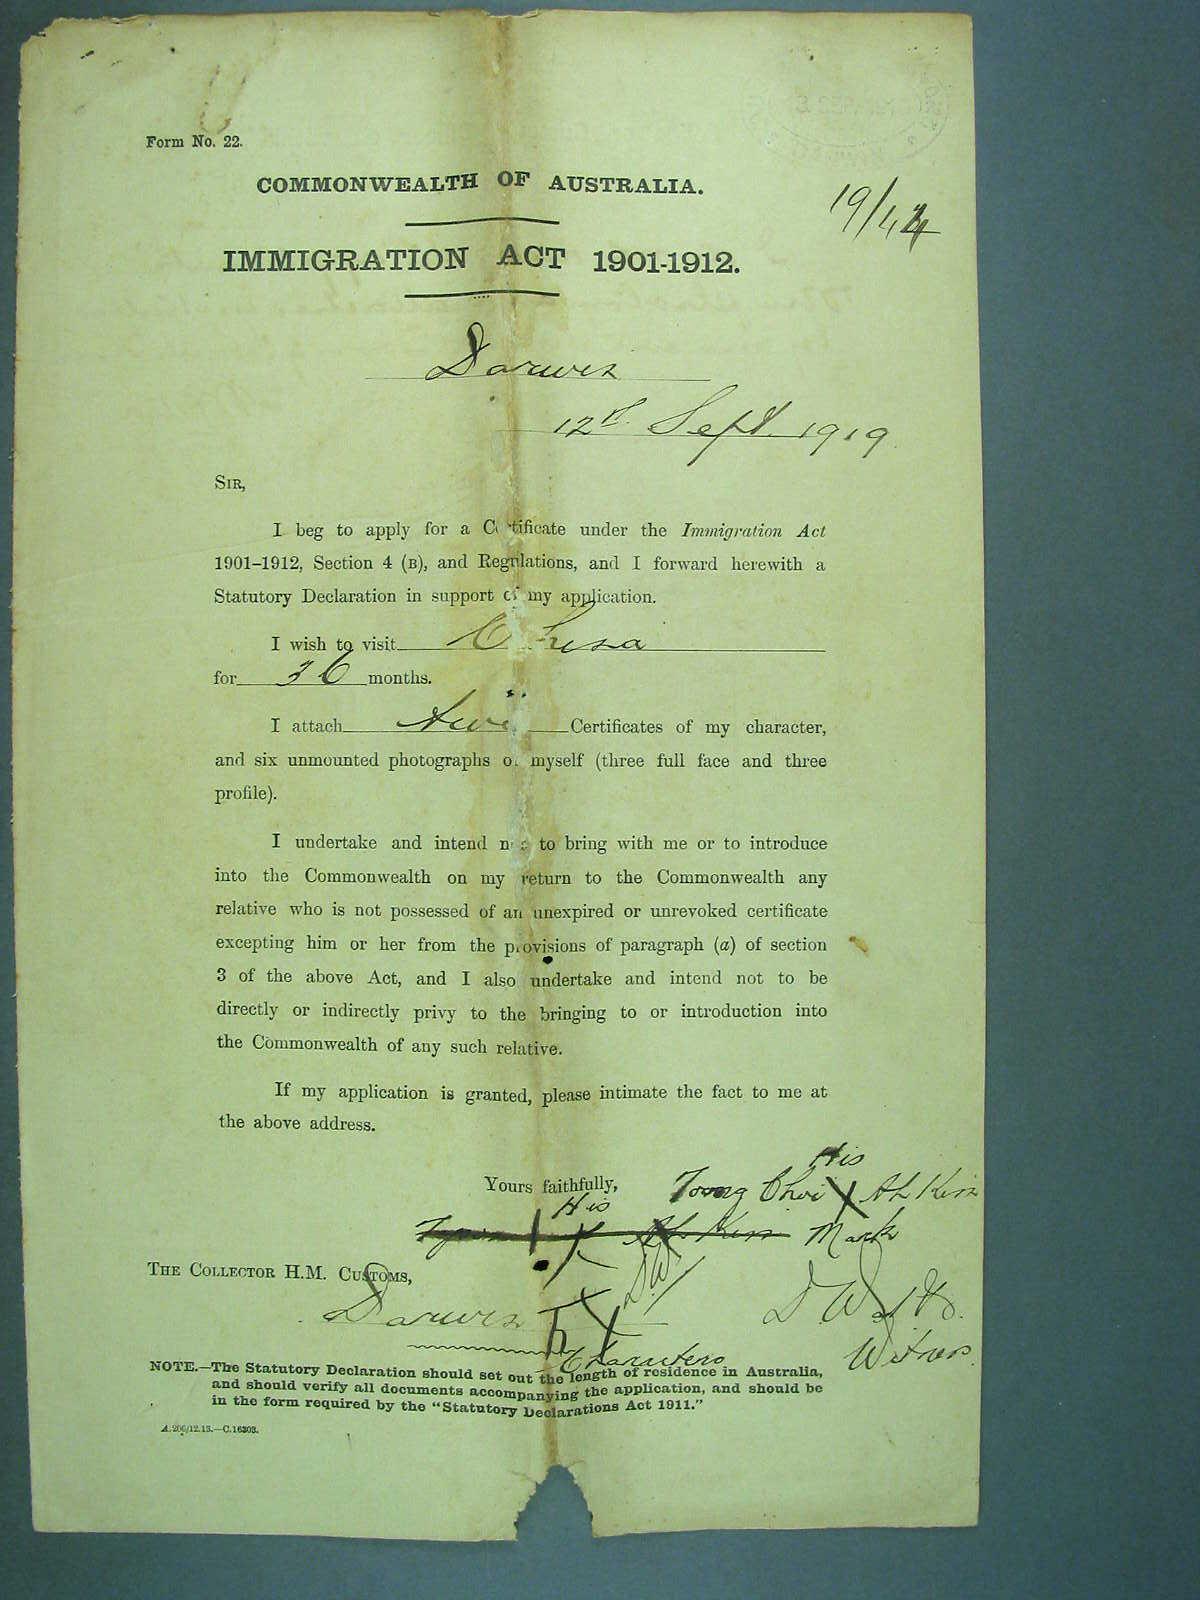 Form No. 22.
COMMONWEALTH OF AUSTRALIA.
19/44
IMMIGRATION ACT 1901-1912.
Darwin
12th Sept. 1919
SIR,
I beg to apply for a Certificate under the Immigration Act
1901-1912, Section 4 (B), and Regulations, and I forward herewith a
Statutory Declaration in support of my application.
I wish to visit China
for 36 months.
I attach two Certificates of my character,
and six unmounted photographs of myself (three full face and three
profile).
I undertake and intend not to bring with me or to introduce
into the Commonwealth on my return to the Commonwealth any
relative who is not possessed of an unexpired or unrevoked certificate
excepting him or her from the provisions of paragraph (a) of section
3 of the above Act, and I also undertake and intend not to be
directly or indirectly privy to the bringing to or introduction into
the Commonwealth of any such relative.
If my application is granted, please intimate the fact to me at
the above address.
His
Yours faithfully, Choi X Ah Kim
His
Ah Kim Mark
THE COLLECTOR H.M. CUSTOMS, D.W.
Darwin
Characters Witness
NOTE.—The Statutory Declaration should set out the length of residence in Australia,
and should verify all documents accompanying the application, and should be
in the form required by the "Statutory Declarations Act 1911."
A.206/12.15.—C.16303.